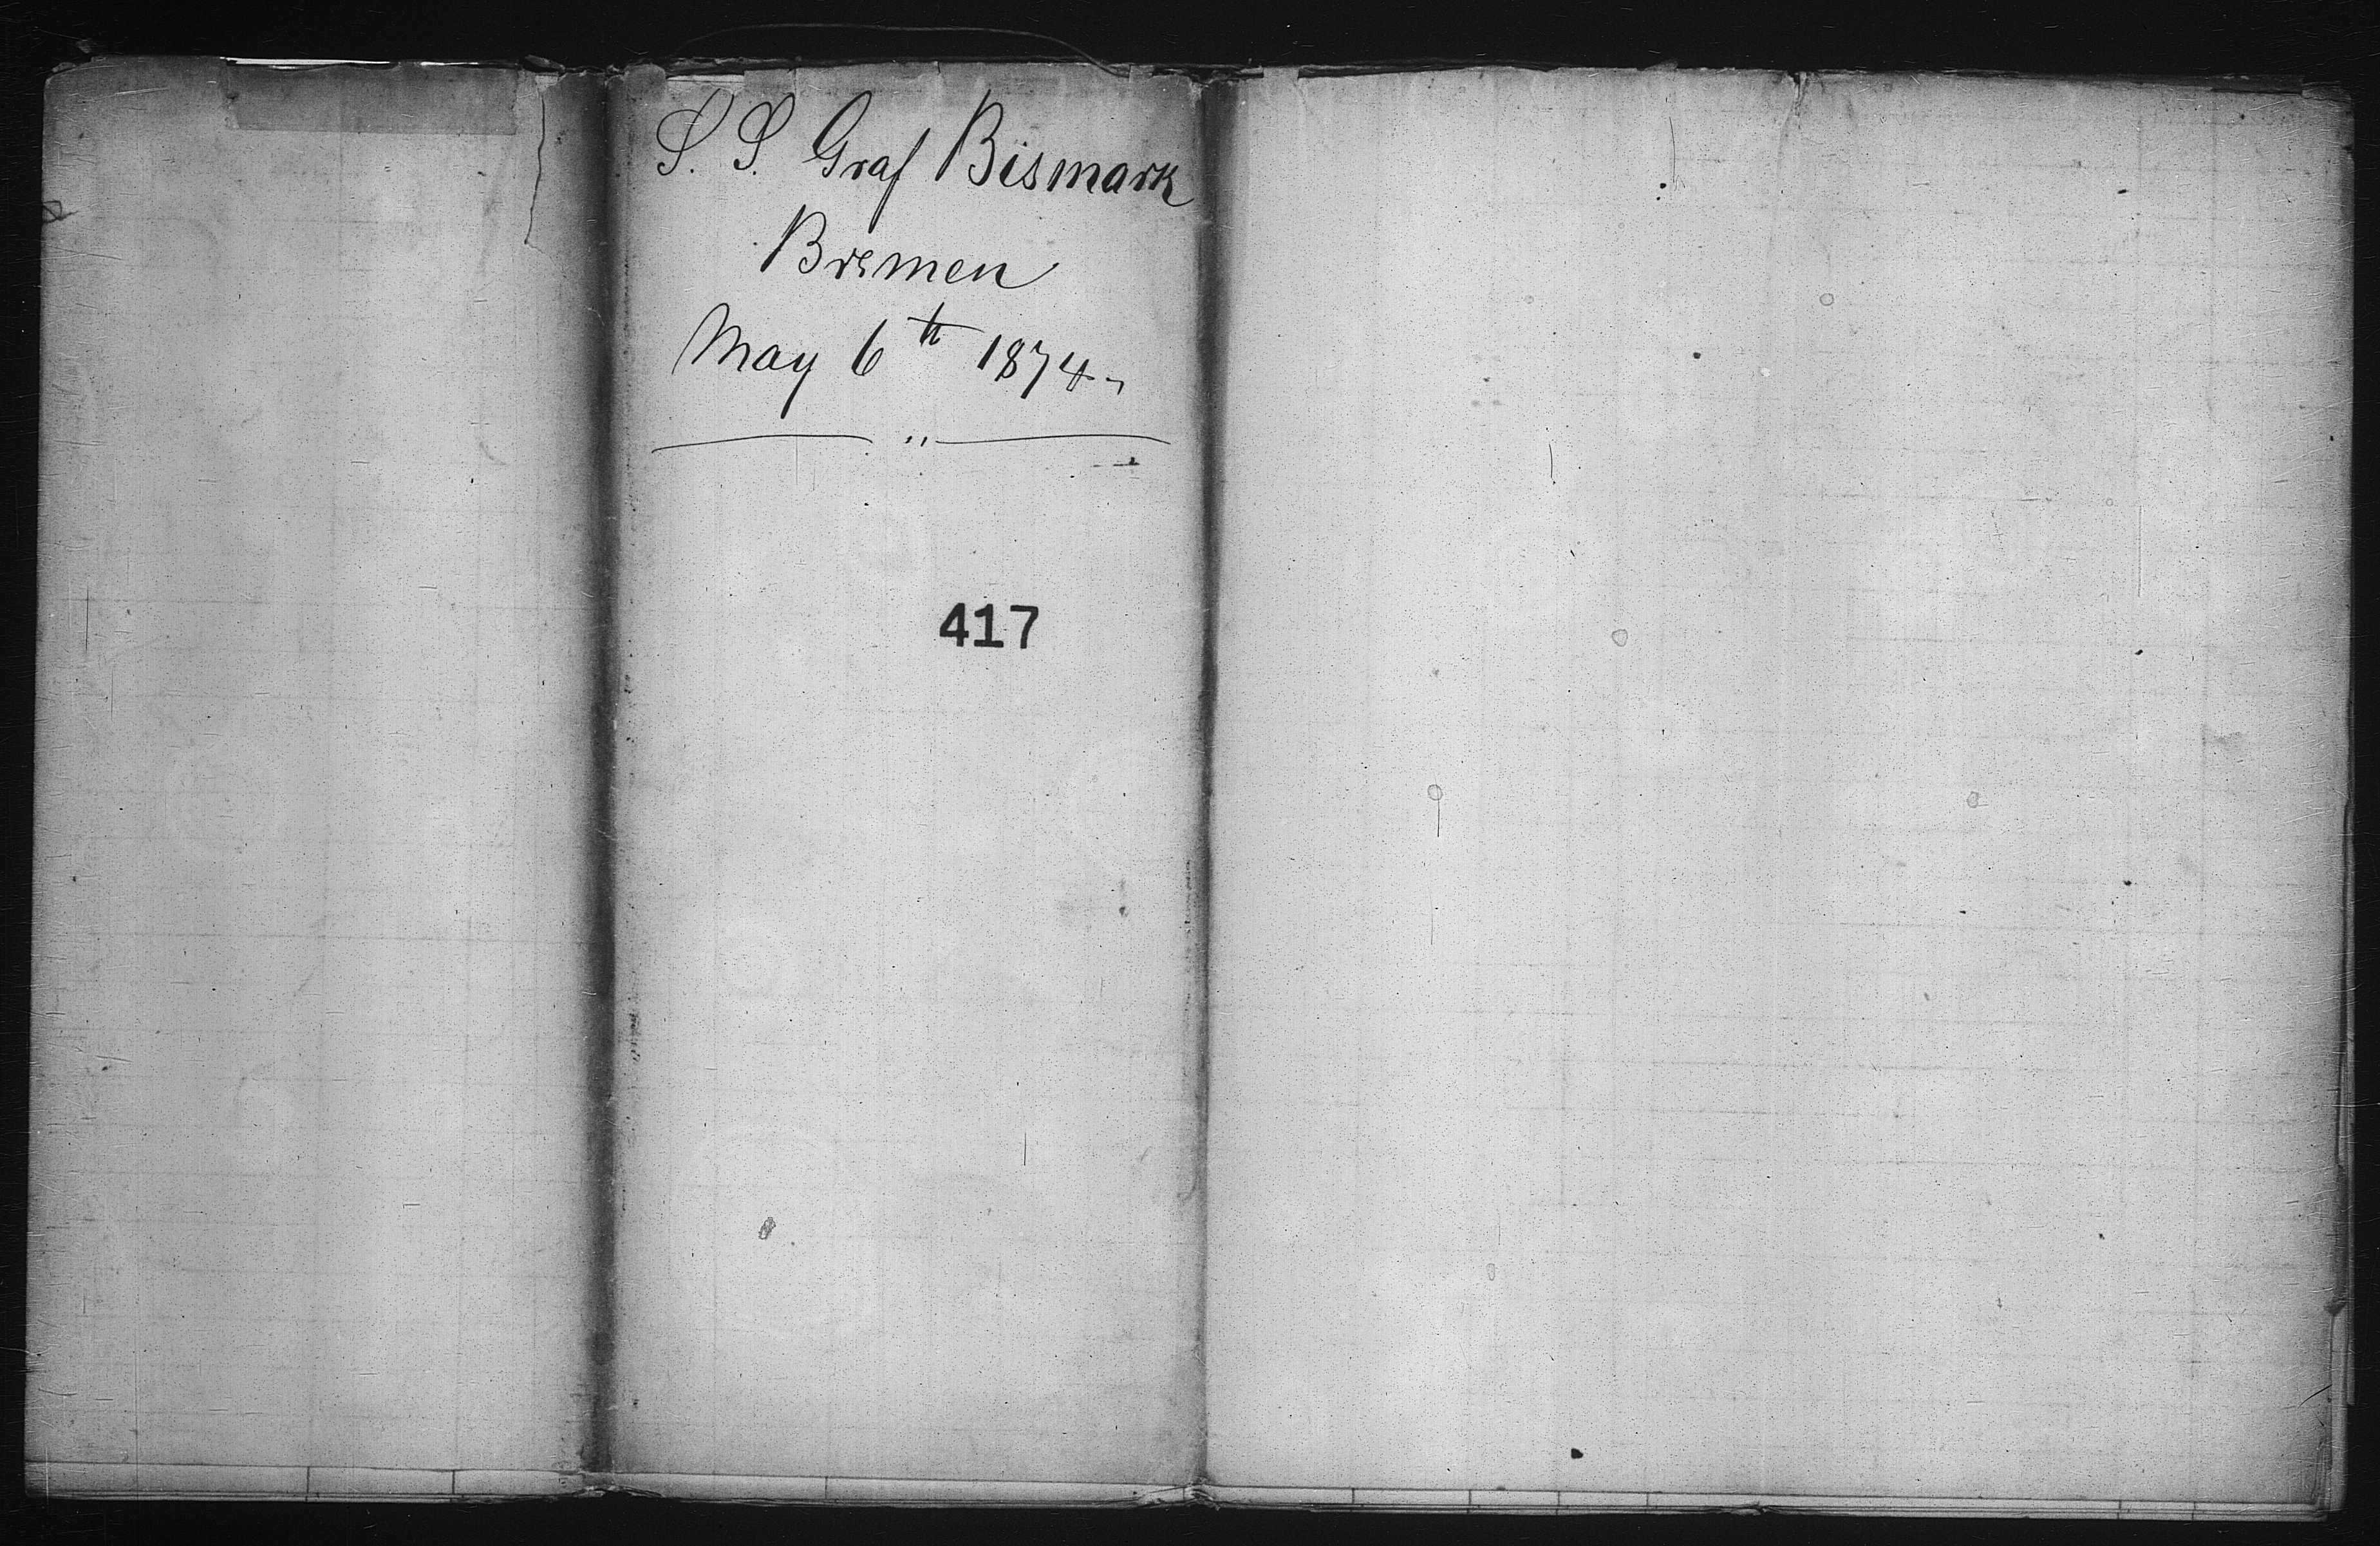 S. S. Graf Bismark
Bremen
May 6th 1874
417